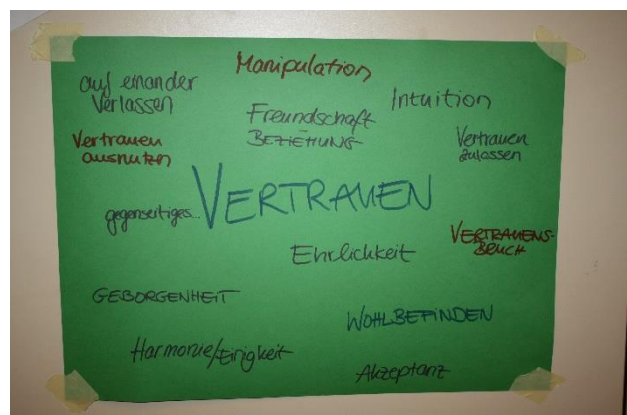 Manipulation
auf einander
Verlassen
Intuition
Freundschaft
BEZIEHUNG
Vertrauen
ausnutzen
Vertrauen
zulassen
gegenseitiges...
VERTRAUEN
VERTRAUENS-
BRUCH
Ehrlichkeit
GEBORGENHEIT
WOHLBEFINDEN
Harmonie/Einigkeit
Akzeptanz